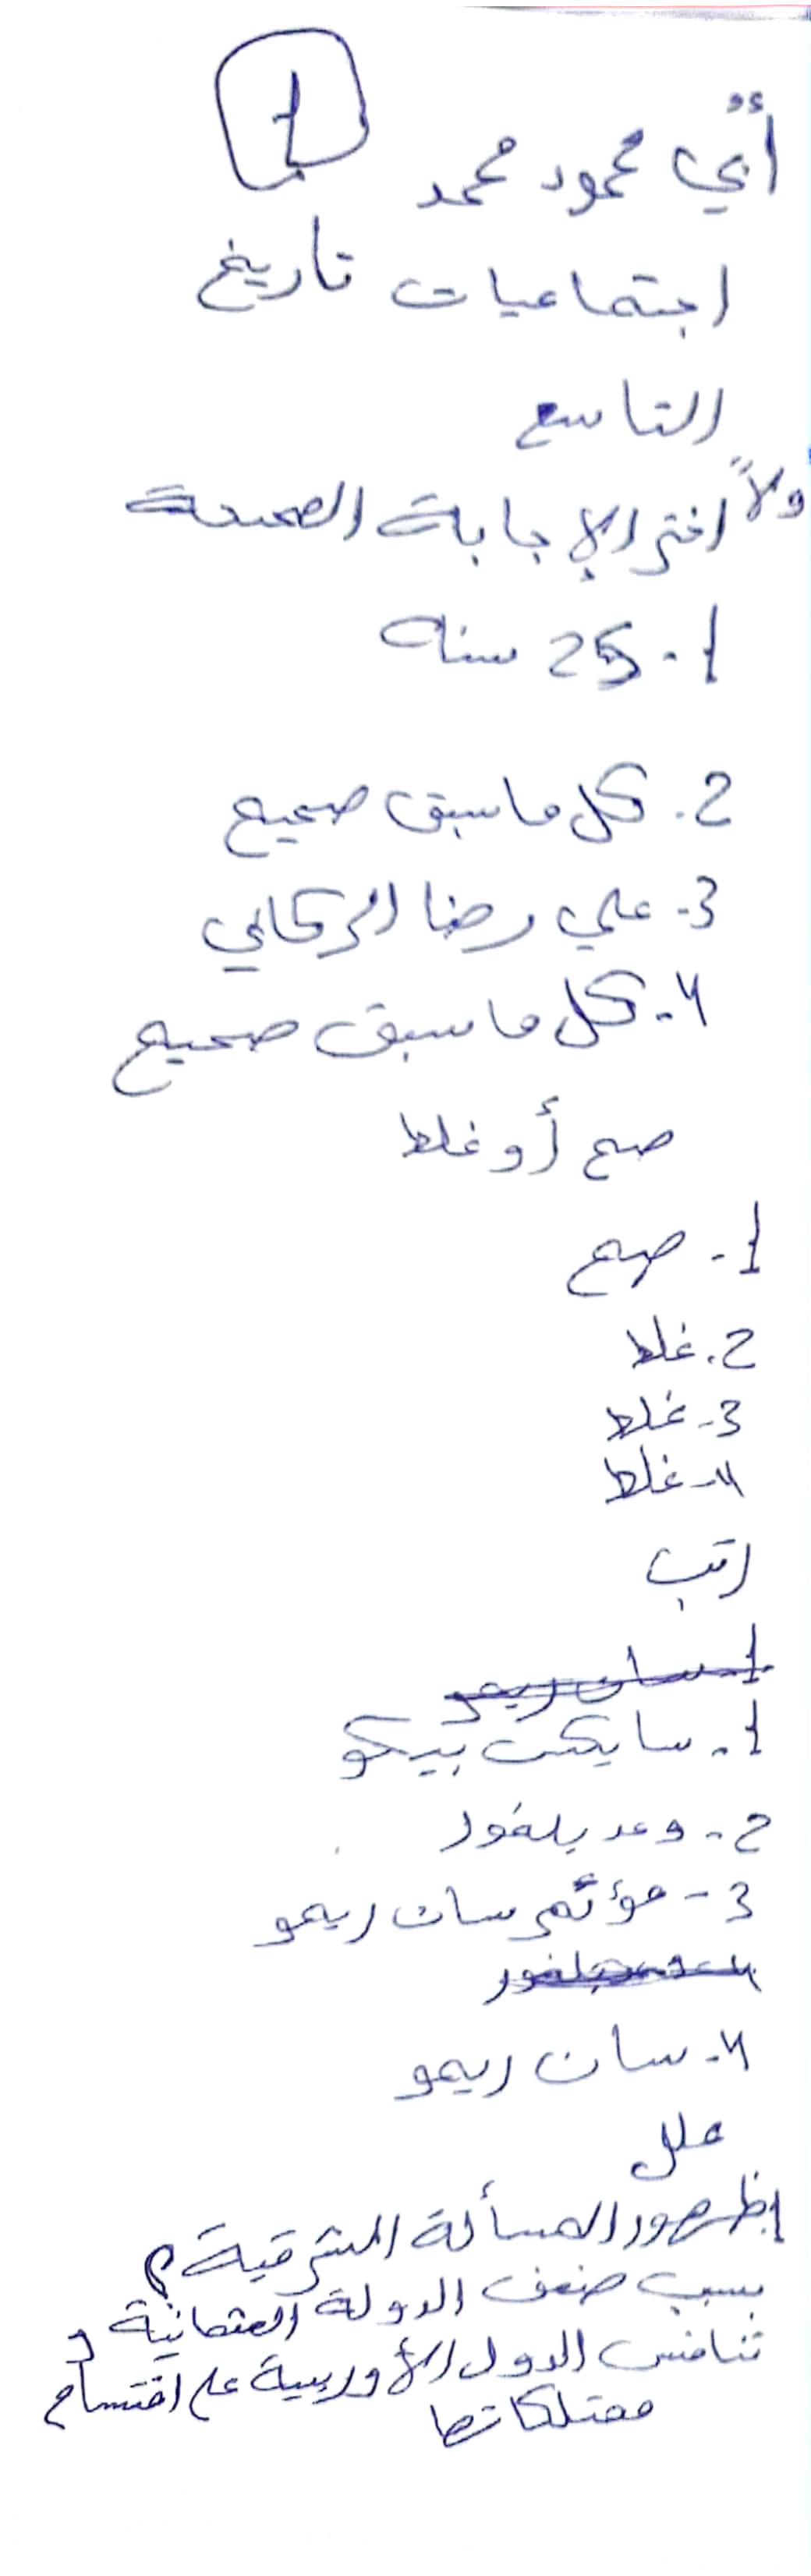 1
أُبي محمود محمد
اجتماعيات تاريخ
التاسع
ولاً اختر الإجابة الصحيحة
1. 25 سنه
2. كل ماسبق صحيح
3- علي رضا الركابي
4- كل ماسبق صحيح
صح أو غلط
1- صح
2. غلط
3- غلط
4- غلط
رتب
1- سان ريمو
1. سايكس بيكو
2- وعد بلفور
3- مؤتمر سان ريمو
4- وعد بلفور
4- سان ريمو
علل
1 ظهور المسألة الشرقية؟
بسبب ضعف الدولة العثمانية و
تنافس الدول الأوربية على اقتسام
ممتلكاتها